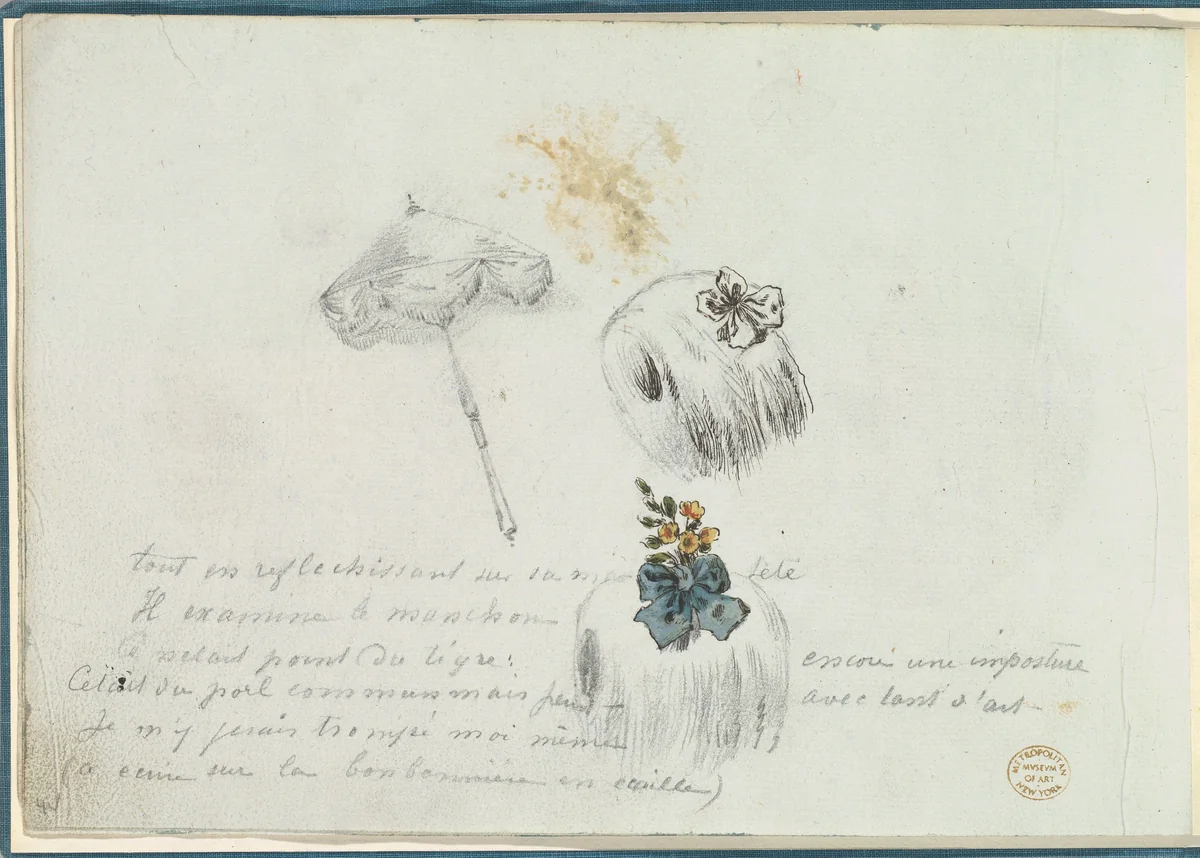 tout en reflechissant sur sa tété
Il examine le manchon
Ce n'etait point du tigre: encore une imposture
C'etait du poil commun mais peint avec tant d'art
Je m'y serais trompé moi même
(a ecrire sur la bonbonnière en ecaille)
METROPOLITAN MUSEUM OF ART NEW YORK